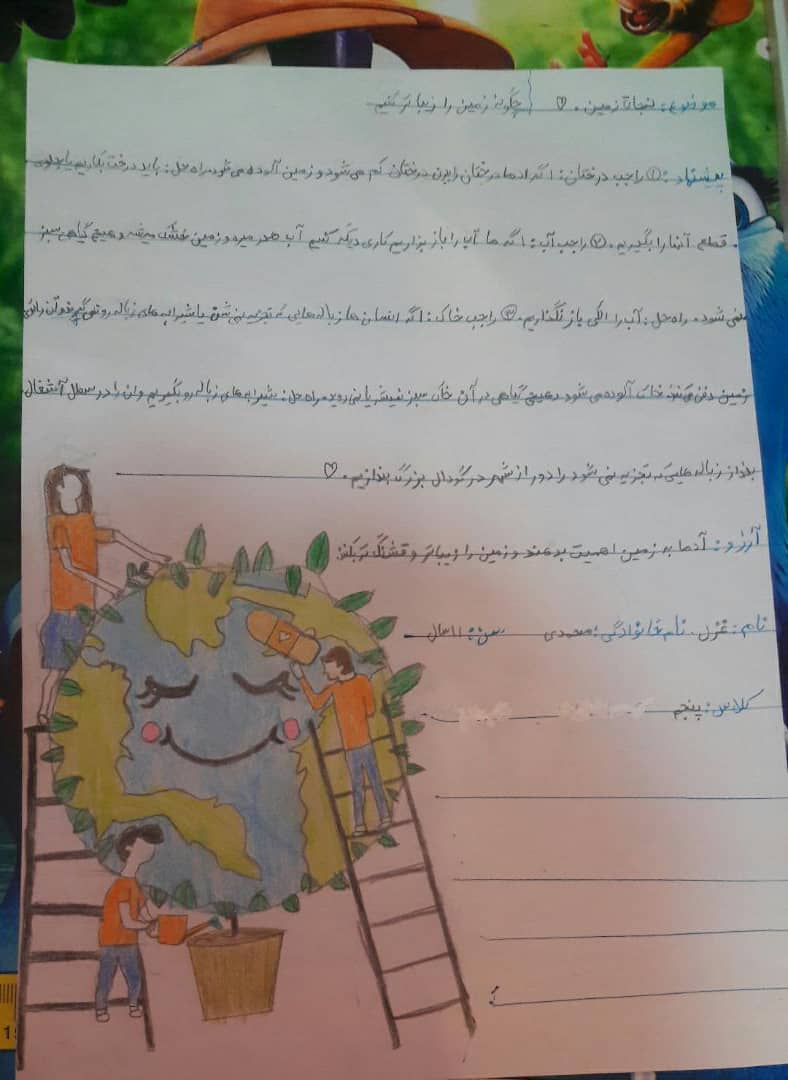 موضوع: نجات زمین. ♡ چگونه زمین را زیباتر کنیم.
پیشنهاد: ① راجب درختان: اگه ادما درختان را ببرن درختان کم می شود و زمین آلوده می شود. راه حل: باید درخت بکاریم یا جلوی
قطع آنها را بگیریم. ② راجب آب: اگه ما آب را باز بزاریم کاری دیگه کنیم آب هدر میره و زمین خشک میشه و هیچ گیاهی سبز
نمی شود. راه حل: آب را الکی باز نگذاریم. ③ راجب خاک: اگه انسان ها زباله هایی که تجزیه نمی شن یا شیرابه های زباله رو نمی گیرند و آن را توی
زمین دفن میکنند خاک آلوده می شود و هیچ گیاهی در آن خاک سبز نمیشه یا نمی روید. راه حل: شیرابه های زباله رو بگیریم و ان را در سطل آشغال
بنداز زباله هایی که تجزیه نمی شود را دور از شهر در گودال بزرگ بندازیم. ♡
آرزو: آدما به زمین اهمیت بدهند و زمین را زیباتر و قشنگ تر بکنند
نام: غزل. نام خانوادگی: محمدی سن: ۱۱ سال
کلاس: پنجم